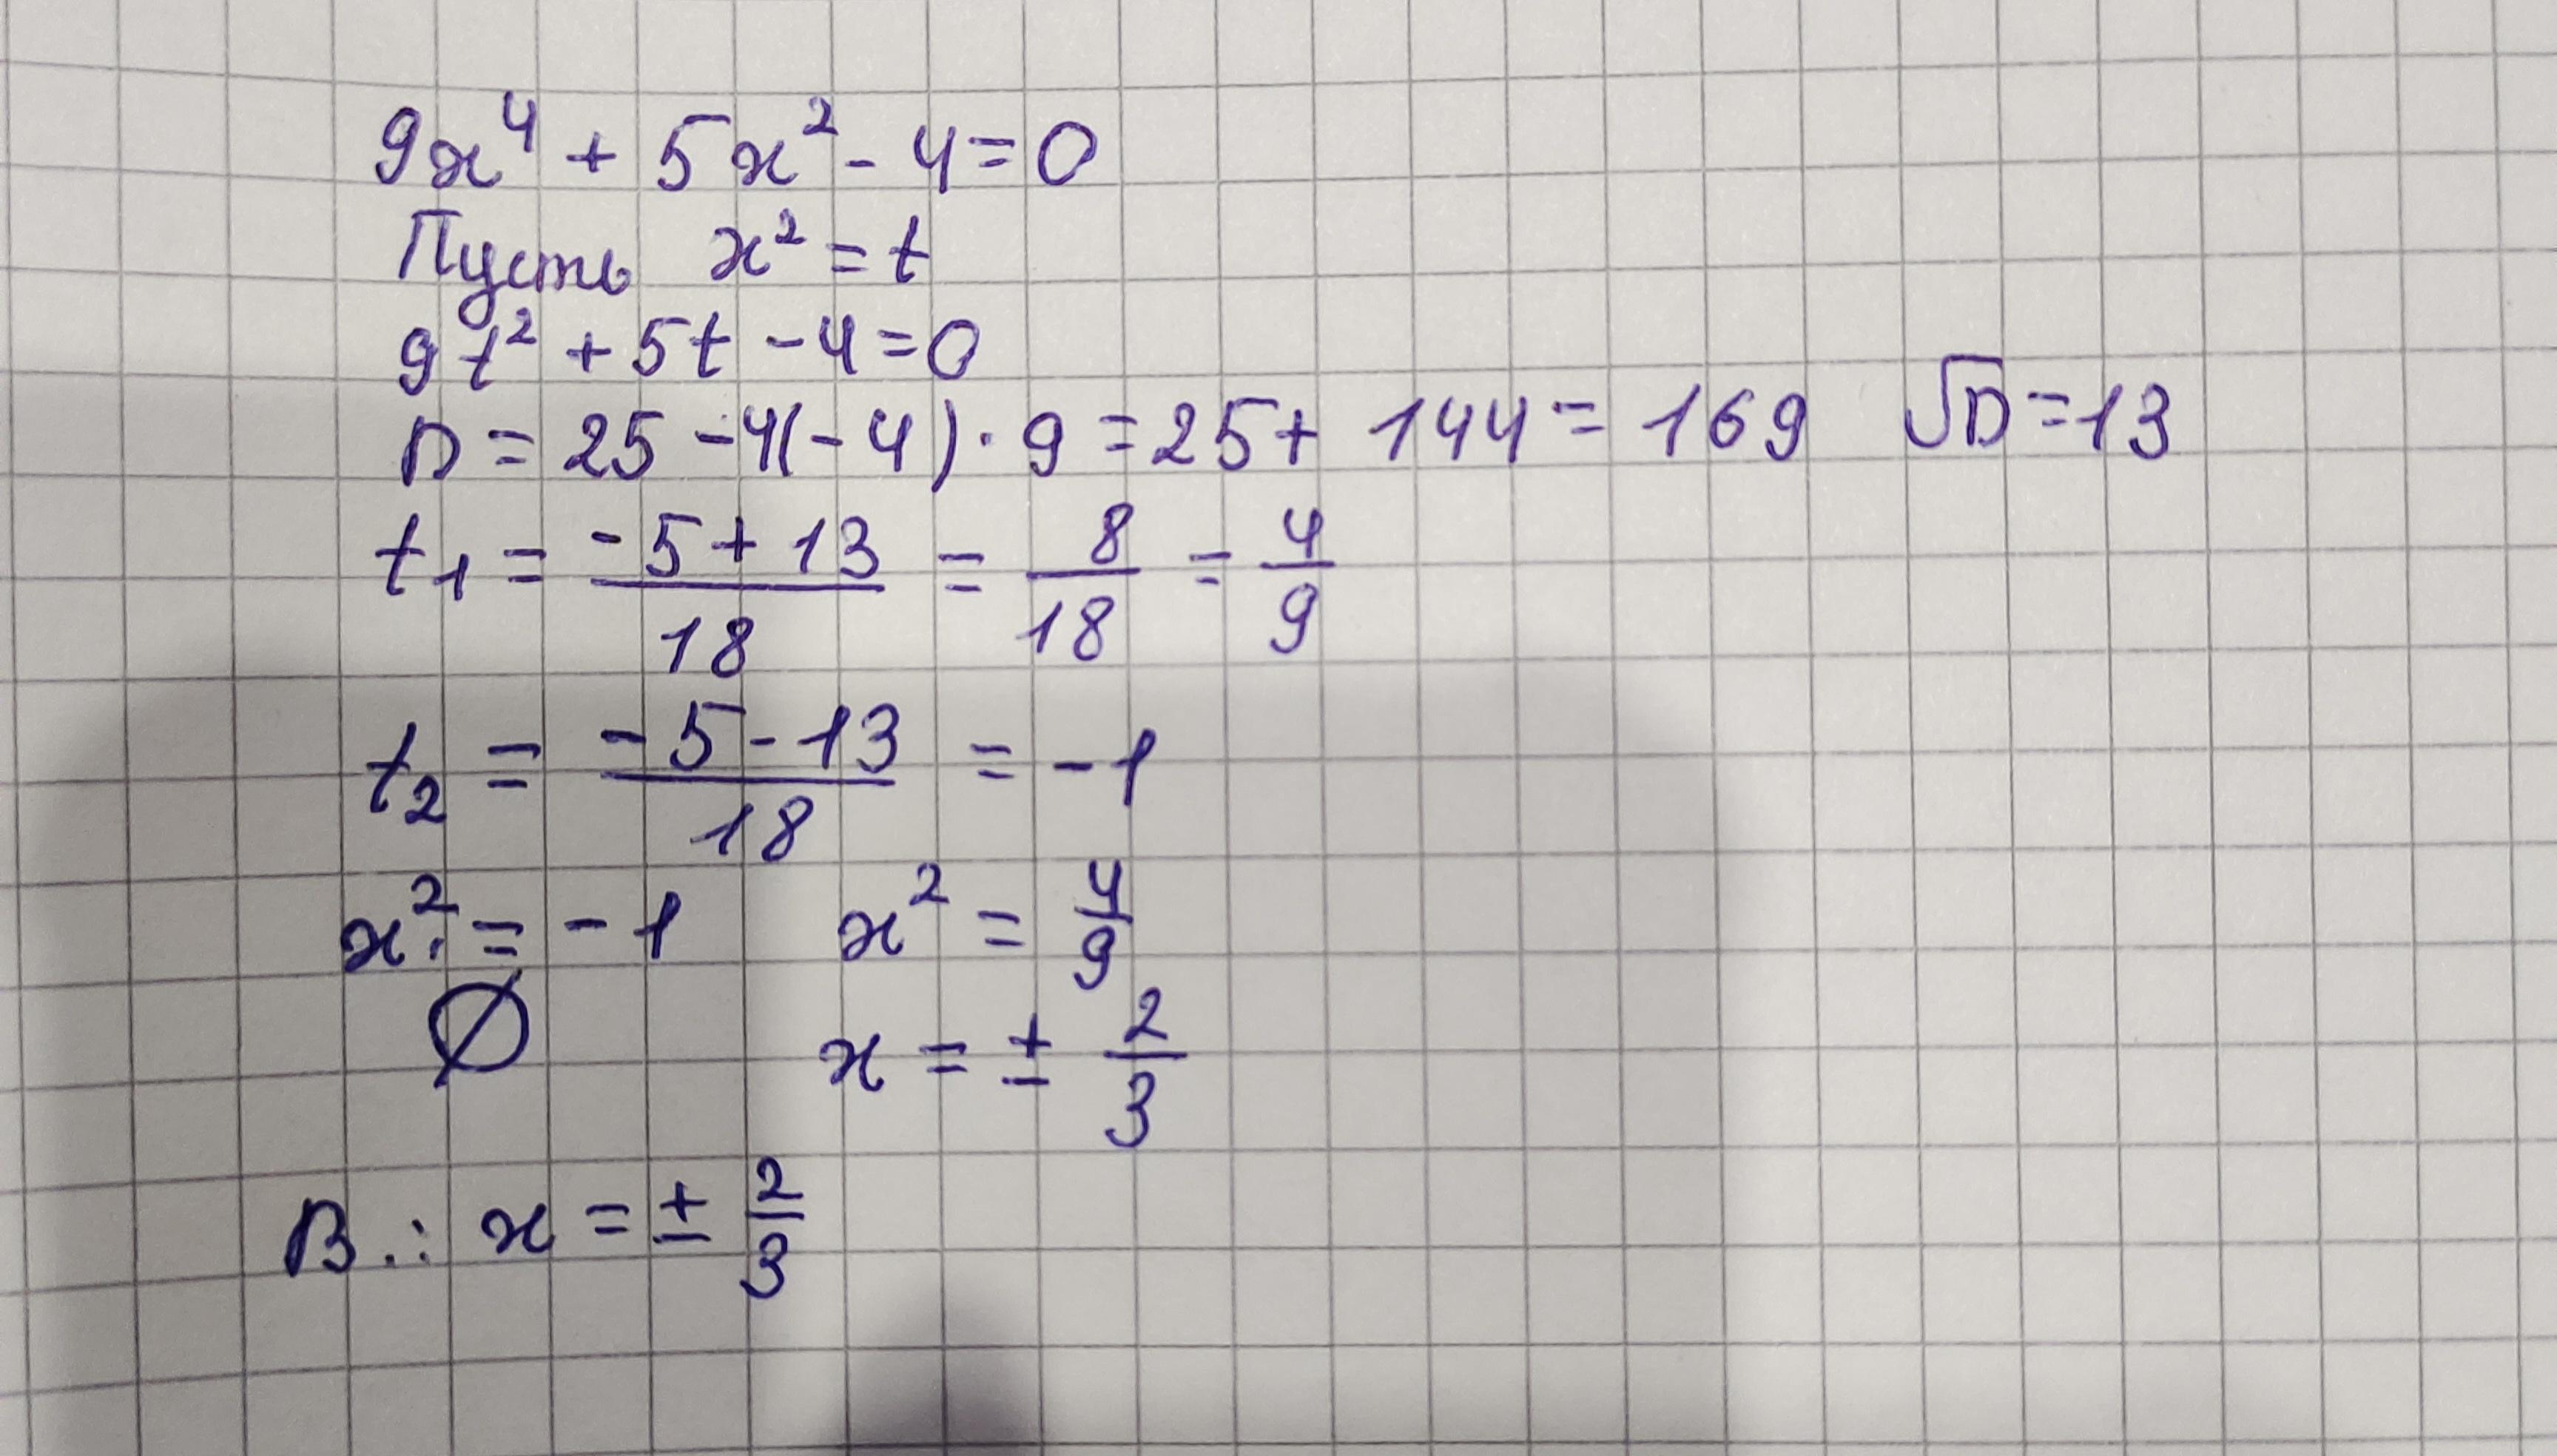 9x⁴ + 5x² - 4 = 0
Пусть x² = t
9t² + 5t - 4 = 0
D = 25 - 4(-4) · 9 = 25 + 144 = 169 √D = 13
t₁ = (-5 + 13)/18 = 8/18 = 4/9
t₂ = (-5 - 13)/18 = -1
x² = -1 x² = 4/9
∅ x = ± 2/3
В.: x = ± 2/3